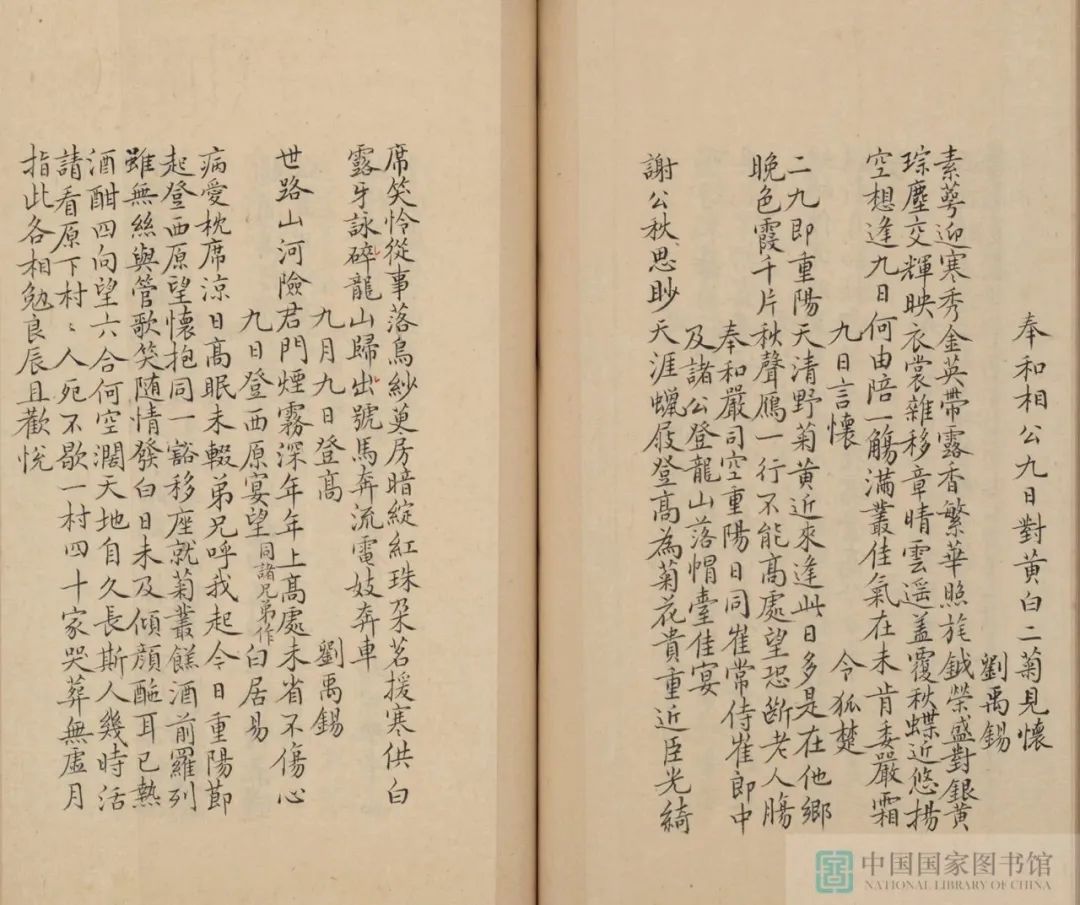 奉和相公九日對黄白二菊見懷
劉禹錫
素萼迎寒秀金英帶露香繁華照旄鉞榮盛對銀黄
琮塵交輝映衣裳雜移章晴雲遥盖覆秋蝶近悠揚
空想逢九日何由陪一觴滿叢佳氣在未肯委嚴霜
九日言懷 令狐楚
二九即重陽天清野菊黄近來逢此日多是在他鄉
晚色霞千片秋聲鴈一行不能高處望恐斷老人腸
奉和嚴司空重陽日同崔常侍崔郎中
及諸公登龍山落帽臺佳宴
謝公秋思眇天涯蠟屐登高為菊花貴重近臣光綺
席笑怜從事落烏紗萸房暗綻紅珠朶茗援寒供白
露牙詠碎龍山歸出號馬奔流電妓奔車
九月九日登高 劉禹錫
世路山河險君門煙霧深年年上高處未省不傷心
九日登西原宴望同諸兄弟作 白居易
病愛枕席涼日高眠未輟弟兄呼我起今日重陽節
起登西原望懷抱同一豁移座就菊叢餻酒前羅列
雖無絲與管歌笑随情發白日未及傾顔酡耳已熱
酒酣四向望六合何空濶天地自久長斯人幾時活
請看原下村〻人死不歇一村四十家哭葬無虚月
指此各相勉良辰且歡悅
中国国家图书馆
NATIONAL LIBRARY OF CHINA